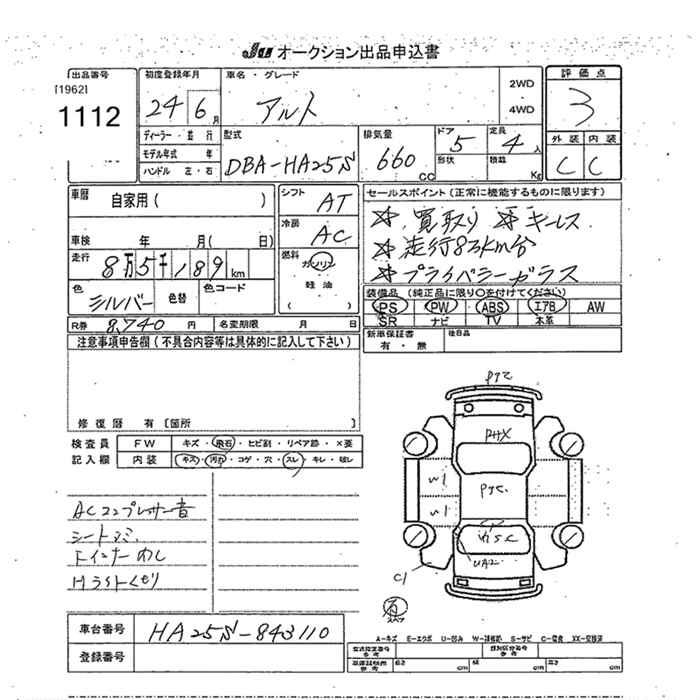 JU オークション出品申込書
出品番号
[1962]
1112
初度登録年月
24 6 月
車名・グレード
アルト
2WD
4WD
評価点
3
外装 内装
C C
ディーラー・並行
モデル年式 年
ハンドル 左・右
型式
DBA-HA25S
排気量
660 CC
ドア
5
形状
定員
4 人
積載
Kg
車歴
自家用 ( )
車検 年 月( 日)
走行
8万5千189 km
色
シルバー
色替
色コード
シフト
AT
冷房
AC
燃料
ガソリン
軽油
( )
セールスポイント (正常に機能するものに限ります)
☆買取り ☆キーレス
☆走行8万km台
☆プライベシーガラス
装備品 (純正品に限り○を付けてください)
PS PW ABS エアB AW
SR ナビ TV 本革
新車保証書
有・無
後日品
R券 8,740 円
名変期限 月 日
注意事項申告欄 (不具合内容等は具体的に記入して下さい)
修復歴 有 [箇所 ]
検査員
記入欄
FW
キズ・飛石・ヒビ割・リペア跡・×要
内装
キズ・汚れ・コゲ・穴・スレ・キレ・破レ
ACコンプレッサー音
シートスミ
Hライトくもり
W1
W1
C1
車台番号
HA25S-843110
登録番号
A-キズ E-エクボ U-凹み W-補修跡 S-サビ C-腐食 XX-交換済
型式指定番号
参考
類別区分番号
参考
長さ cm
幅 cm
高さ cm